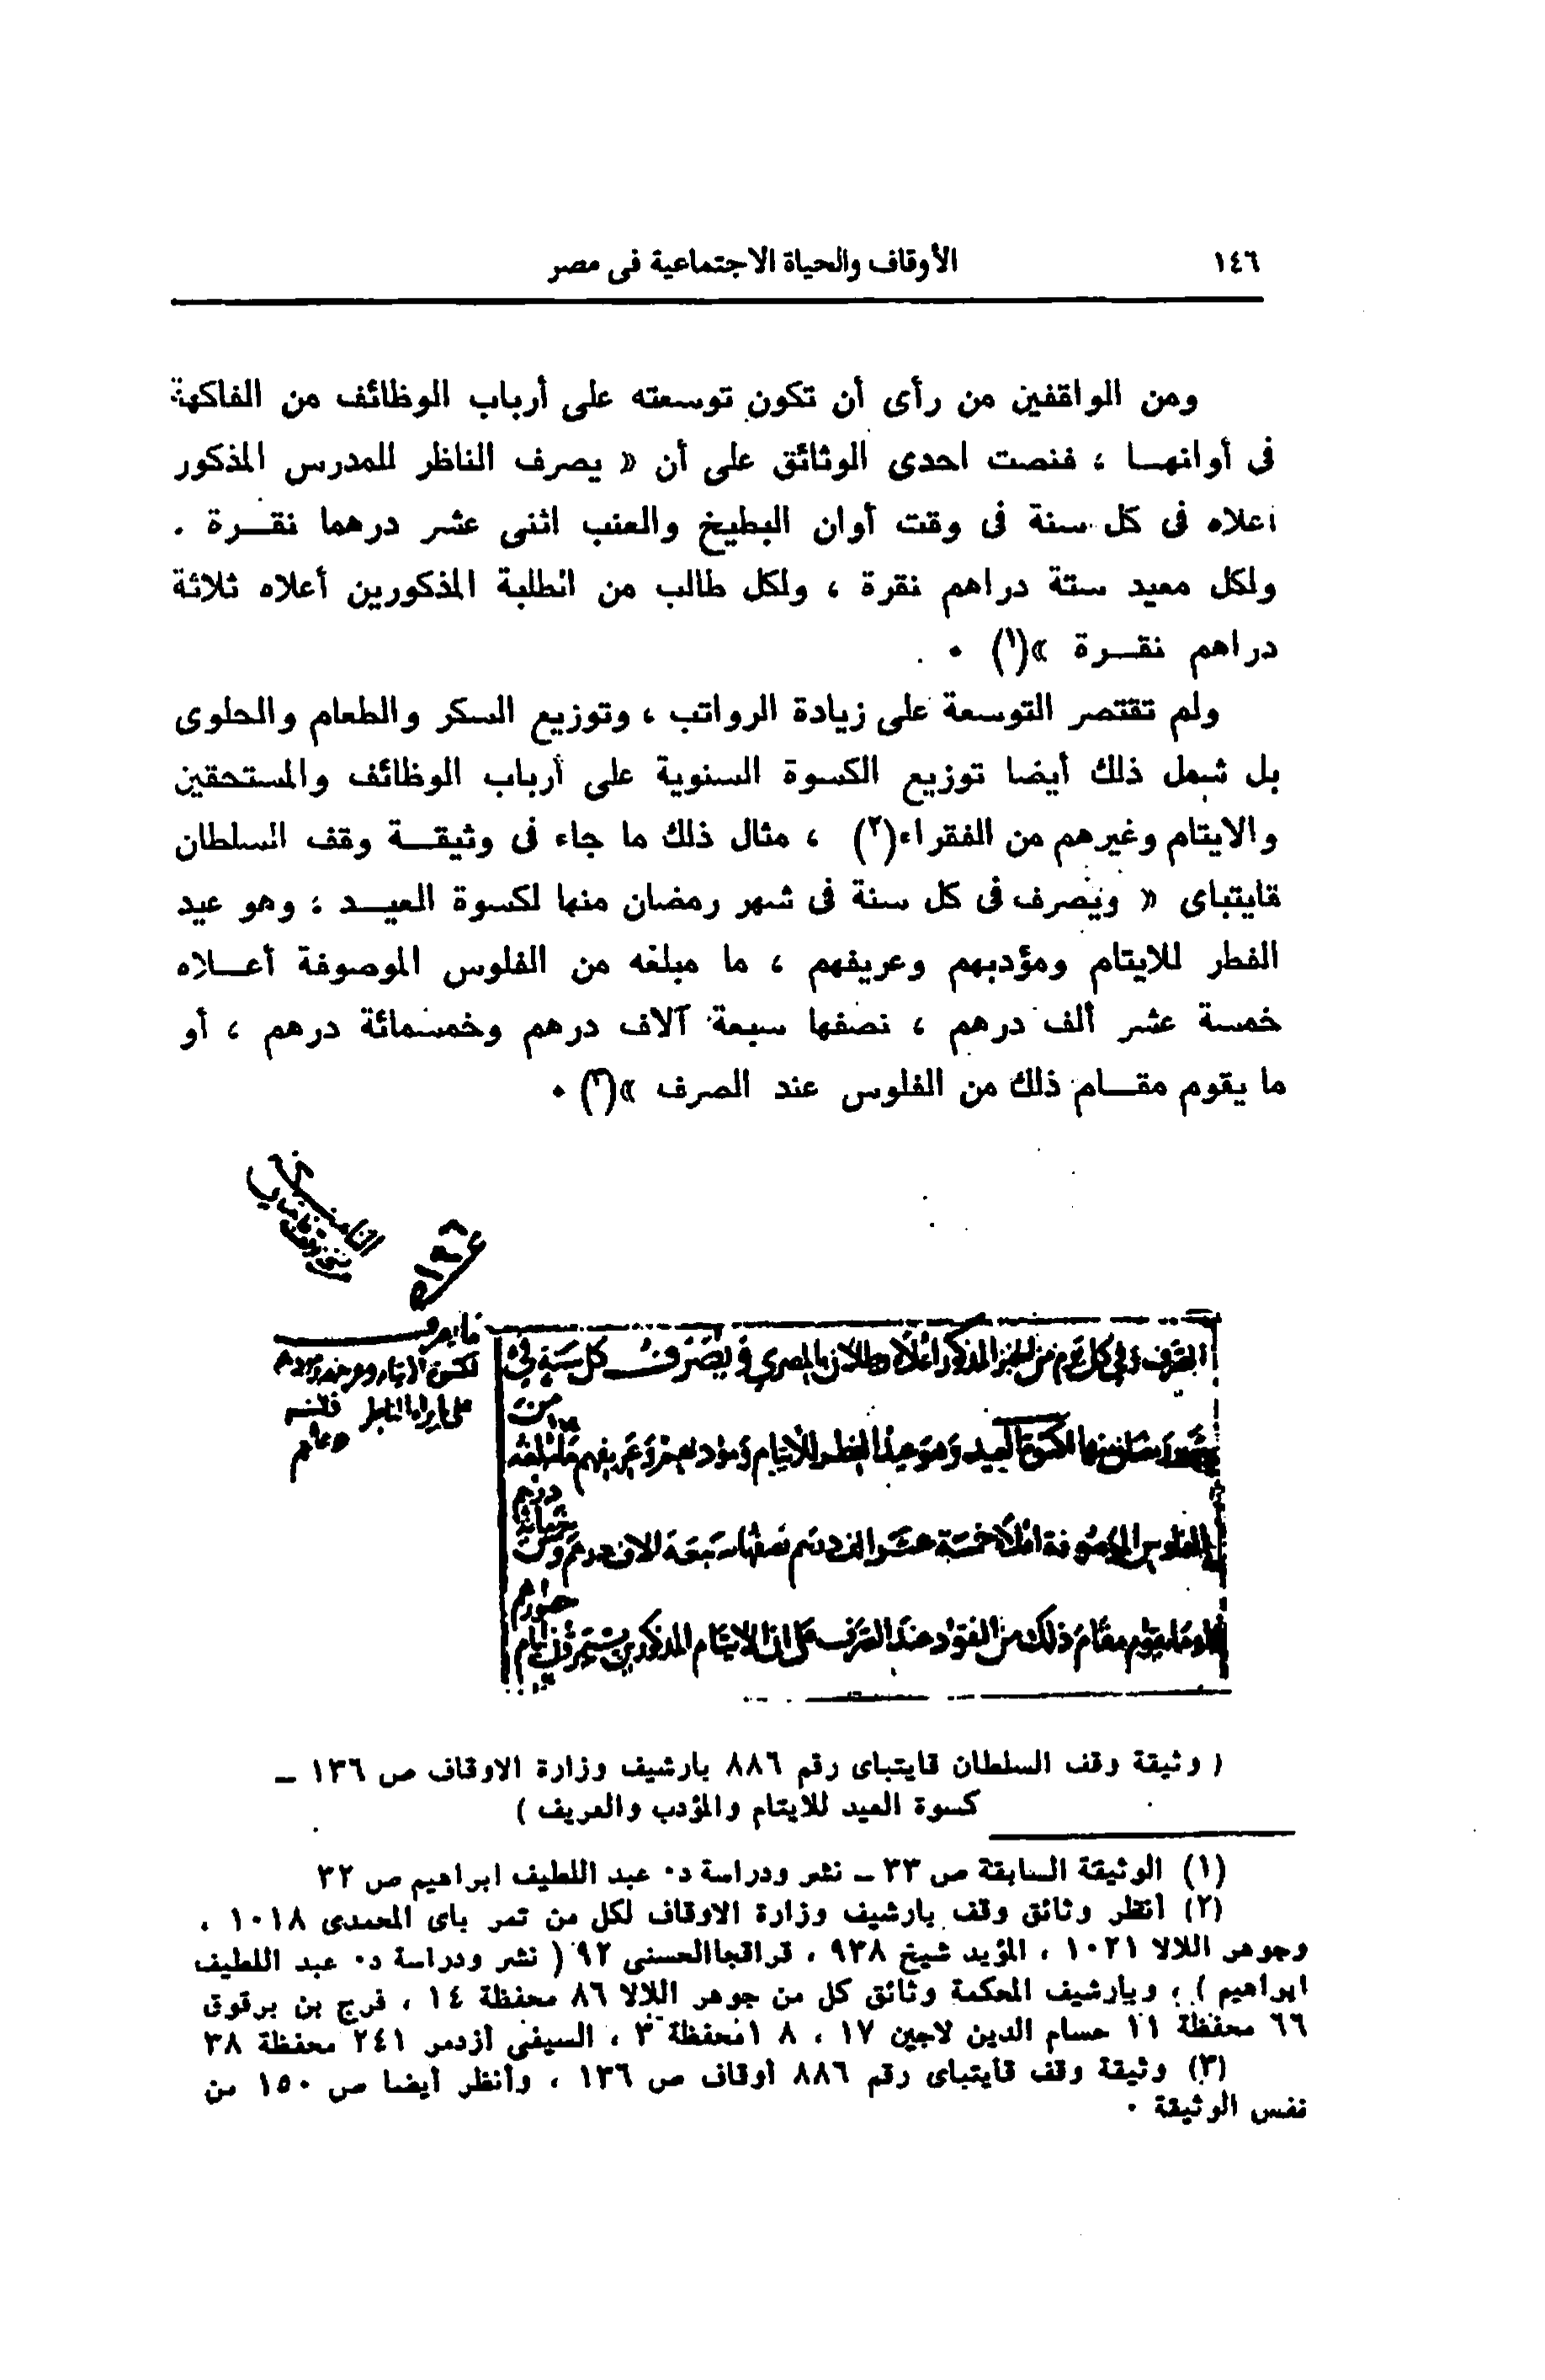 ١٤٦
الأوقاف والحياة الاجتماعية فى مصر
ومن الواقفين من رأى أن تكون توسعته على أرباب الوظائف من الفاكهة
فى أوانهـا ، فنصت احدى الوثائق على أن « يصرف الناظر للمدرس المذكور
اعلاه فى كل سنة فى وقت أوان البطيخ والعنب اثنى عشر درهما نقـرة .
ولكل معيد ستة دراهم نقرة ، ولكل طالب من الطلبة المذكورين أعلاه ثلاثة
دراهم نقـرة »(١) ٠
ولم تقتصر التوسعة على زيادة الرواتب ، وتوزيع السكر والطعام والحلوى
بل شمل ذلك أيضا توزيع الكسوة السنوية على أرباب الوظائف والمستحقين
والايتام وغيرهم من الفقراء(٢) ، مثال ذلك ما جاء فى وثيقـة وقف السلطان
قايتباى « ويصرف فى كل سنة فى شهر رمضان منها لكسوة العيـد ، وهو عيد
الفطر للايتام ومؤدبهم وعريفهم ، ما مبلغه من الفلوس الموصوفة أعـلاه
خمسة عشر ألف درهم ، نصفها سبعة آلاف درهم وخمسمائة درهم ، أو
ما يقوم مقـام ذلك من الفلوس عند الصرف »(٣) ٠
الصرف وفى كل يوم من الخبز المذكور اعلاه رطلان بالمصري ويصرف كل سنة في
شهر رمضان منها لكسوة العيد وهو عيد الفطر للأيتام ومؤدبهم وعريفهم ما مبلغه من
الفلوس الموصوفة اعلاه خمسة عشر الف درهم نصفها سبعة الاف درهم وخمسمائة درهم
او ما يقوم مقام ذلك من الفلوس عند الصرف على ان الايتام المذكورين
( وثيقة وقف السلطان قايتباى رقم ٨٨٦ بارشيف وزارة الاوقاف ص ١٣٦ –
كسوة العيد للايتام والمؤدب والعريف )
(١) الوثيقة السابقة ص ٣٣ – نشر ودراسة د٠ عبد اللطيف ابراهيم ص ٣٢
(٢) أنظر وثائق وقف بارشيف وزارة الاوقاف لكل من تمر باى المحمدى ١٠١٨ ،
وجوهر اللالا ١٠٢١ ، المؤيد شيخ ٩٣٨ ، قراقجا الحسنى ٩٢ ( نشر ودراسة د٠ عبد اللطيف
ابراهيم ) ، وبارشيف المحكمة وثائق كل من جوهر اللالا ٨٦ محفظة ١٤ ، فرج بن برقوق
٦٦ محفظة ١١ حسام الدين لاجين ١٧ ، ١٨ محفظة ٣ ، السيفى أزدمر ٢٤١ محفظة ٣٨
(٣) وثيقة وقف قايتباى رقم ٨٨٦ أوقاف ص ١٣٦ ، وأنظر أيضا ص ١٥٠ من
نفس الوثيقة ٠